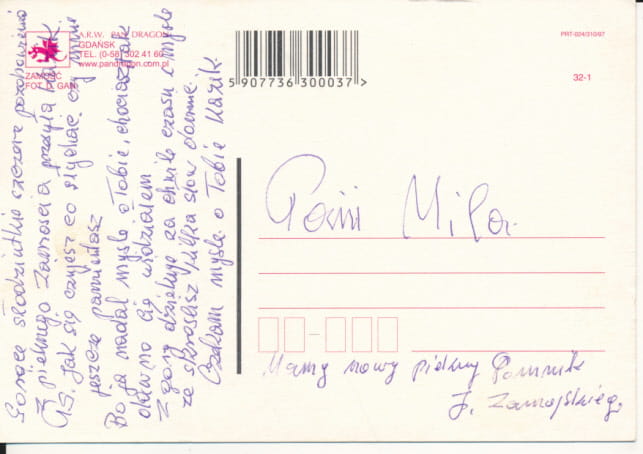 A.R.W. PAN DRAGON
GDAŃSK
TEL. (0-58) 302 41 60
www.pandragon.com.pl
ZAMOŚĆ
FOT. D. GAJ
5 907736 300037 >
PRT-024/310/97
32-1
Gorące słodziutkie szczere pozdrowienia
Z pięknego Zamościa przesyła Kazik
GS. Jak się czujesz co słychać, czy mnie
jeszcze pamiętasz
Bo ja nadal myślę o Tobie, chociaż tak
dawno Cię widziałem
Z góry dziękuję za chwilę czasu i myślę
że skreślisz kilka słów do mnie.
Czekam myślę o Tobie Kazik
Pani Mila
Mamy nowy piękny Pomnik
J. Zamojskiego